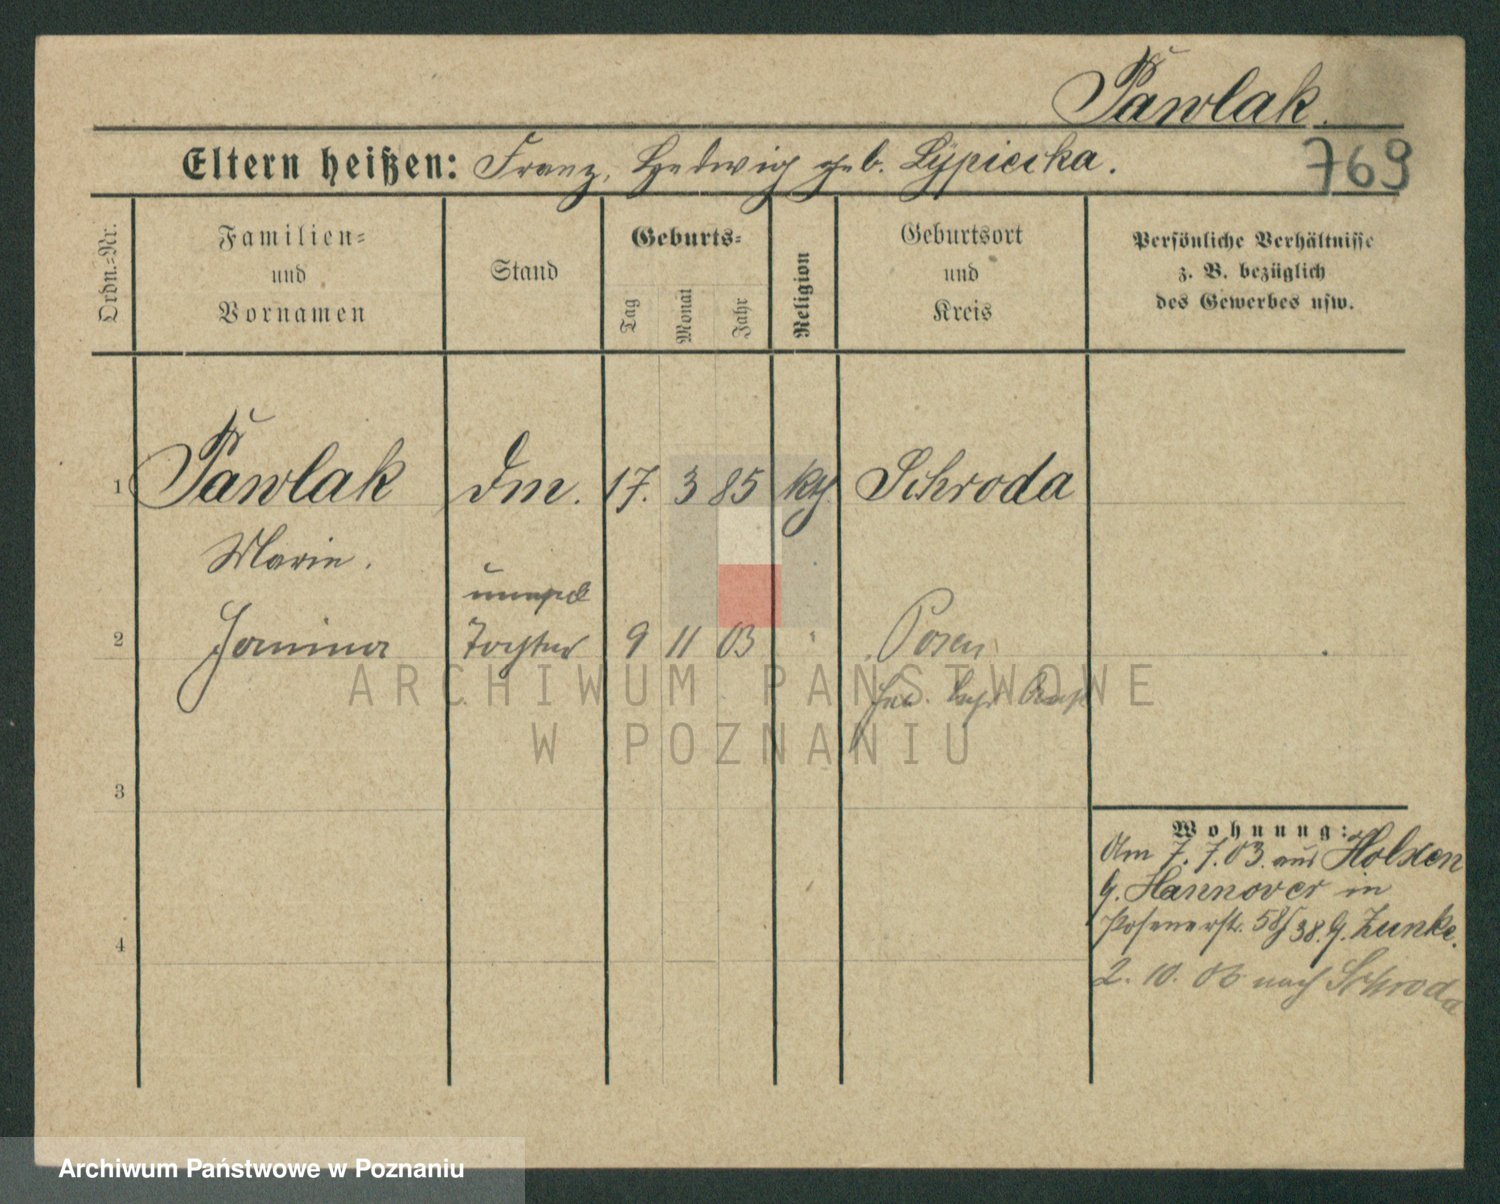 Pawlak.
Eltern heißen: Franz, Hedwig geb. Lypiecka.
769
Ordn.-Nr.
Familien-
und
Vornamen
Stand
Geburts-
Tag
Monat
Jahr
Religion
Geburtsort
und
Kreis
Persönliche Verhältnisse
z. B. bezüglich
des Gewerbes usw.
1 Pawlak Dm. 17. 3 85 kth. Schroda
Marie.
unehel
2 Janina Tochter 9 11 03 Posen
ARCHIWUM PAŃSTWOWE
W POZNANIU
3
Wohnung:
Am 7. 7. 03. aus Holxen
b. Hannover in
Posenerstr. 58/38. b. Zunke.
4
2. 10. 03 nach Schroda
Archiwum Państwowe w Poznaniu